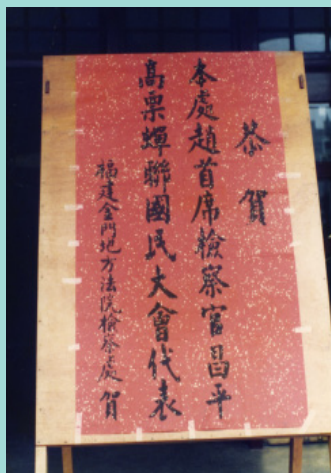 恭賀
本處趙首席檢察官昌平
高票蟬聯國民大會代表
福建金門地方法院檢察處 賀